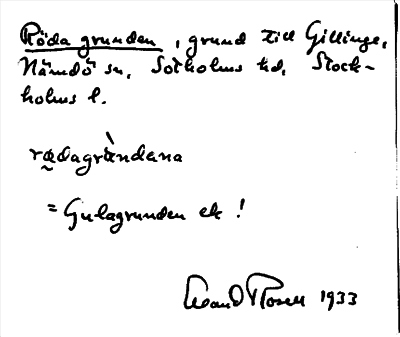 Röda grunden, grund till Gillinge,
Nämdö sn, Sotholms hd, Stock-
holms l.
rødagrùndena
= Gulagrunden ek!
1933